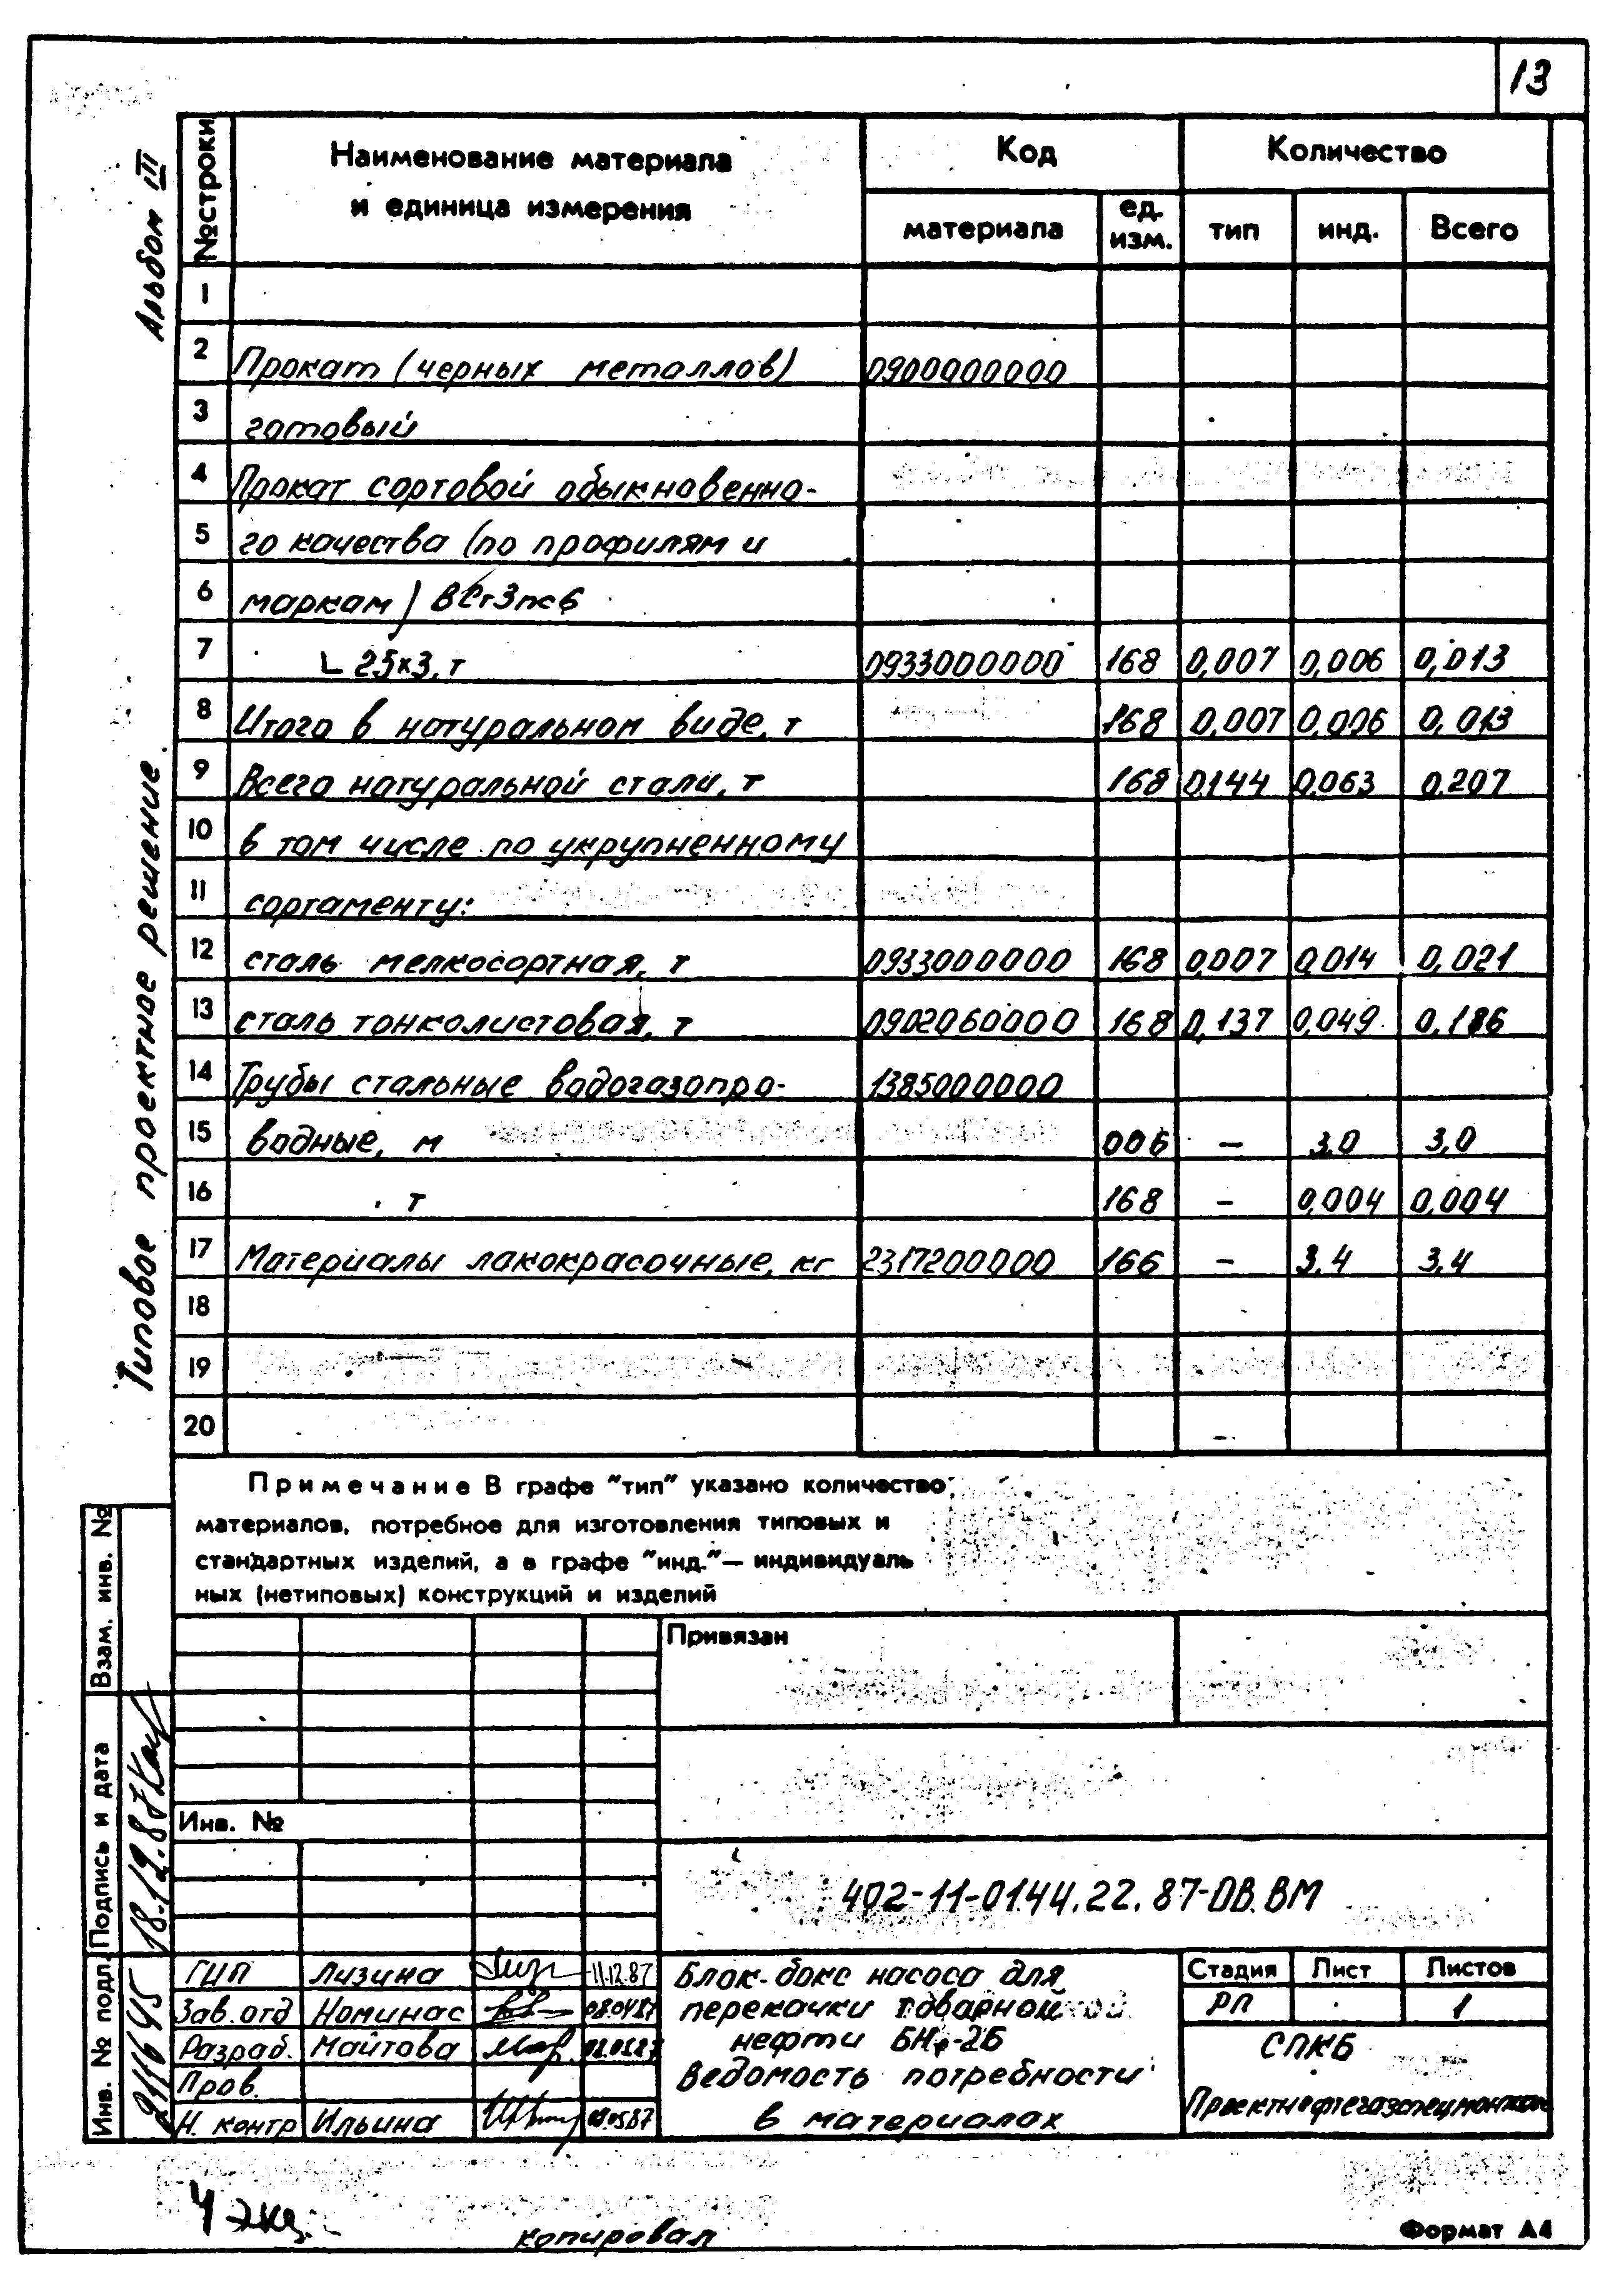 13
Альбом III
Типовое проектное решение
№ строки
Наименование материала
и единица измерения
Код
Количество
материала
ед.
изм.
тип
инд.
Всего
1
2 Прокат (черных металлов) 0900000000
3 готовый
4 Прокат сортовой обыкновенно-
5 го качества (по профилям и
6 маркам) ВСт3пс6
7 L 25х3, т 0933000000 168 0,007 0,006 0,013
8 Итого в натуральном виде, т 168 0,007 0,006 0,013
9 Всего натуральной стали, т 168 0,144 0,063 0,207
10 в том числе по укрупненному
11 сортаменту:
12 сталь мелкосортная, т 0933000000 168 0,007 0,014 0,021
13 сталь тонколистовая, т 0902060000 168 0,137 0,049 0,186
14 Трубы стальные водогазопро- 1385000000
15 водные, м 006 – 3,0 3,0
16 т 168 – 0,004 0,004
17 Материалы лакокрасочные, кг 2317200000 166 – 3,4 3,4
18
19
20
Примечание В графе "тип" указано количество
материалов, потребное для изготовления типовых и
стандартных изделий, а в графе "инд." – индивидуаль
ных (нетиповых) конструкций и изделий
Привязан
Инв. №
Взам. инв. №
Подпись и дата
18.12.87
Инв. № подл.
402-11-0144.22.87-ОВ.ВМ
ГИП Лизина 11.12.87
Зав. отд Номинас 08.04.87
Разраб. Майтова
Пров.
Н. контр Ильина
Блок-бокс насоса для
перекачки товарной
нефти
Ведомость потребности
в материалах
Стадия Лист Листов
РП 1
СПКБ
Проектнефтегазспецмонтаж
4 экз.
копировал
Формат А4